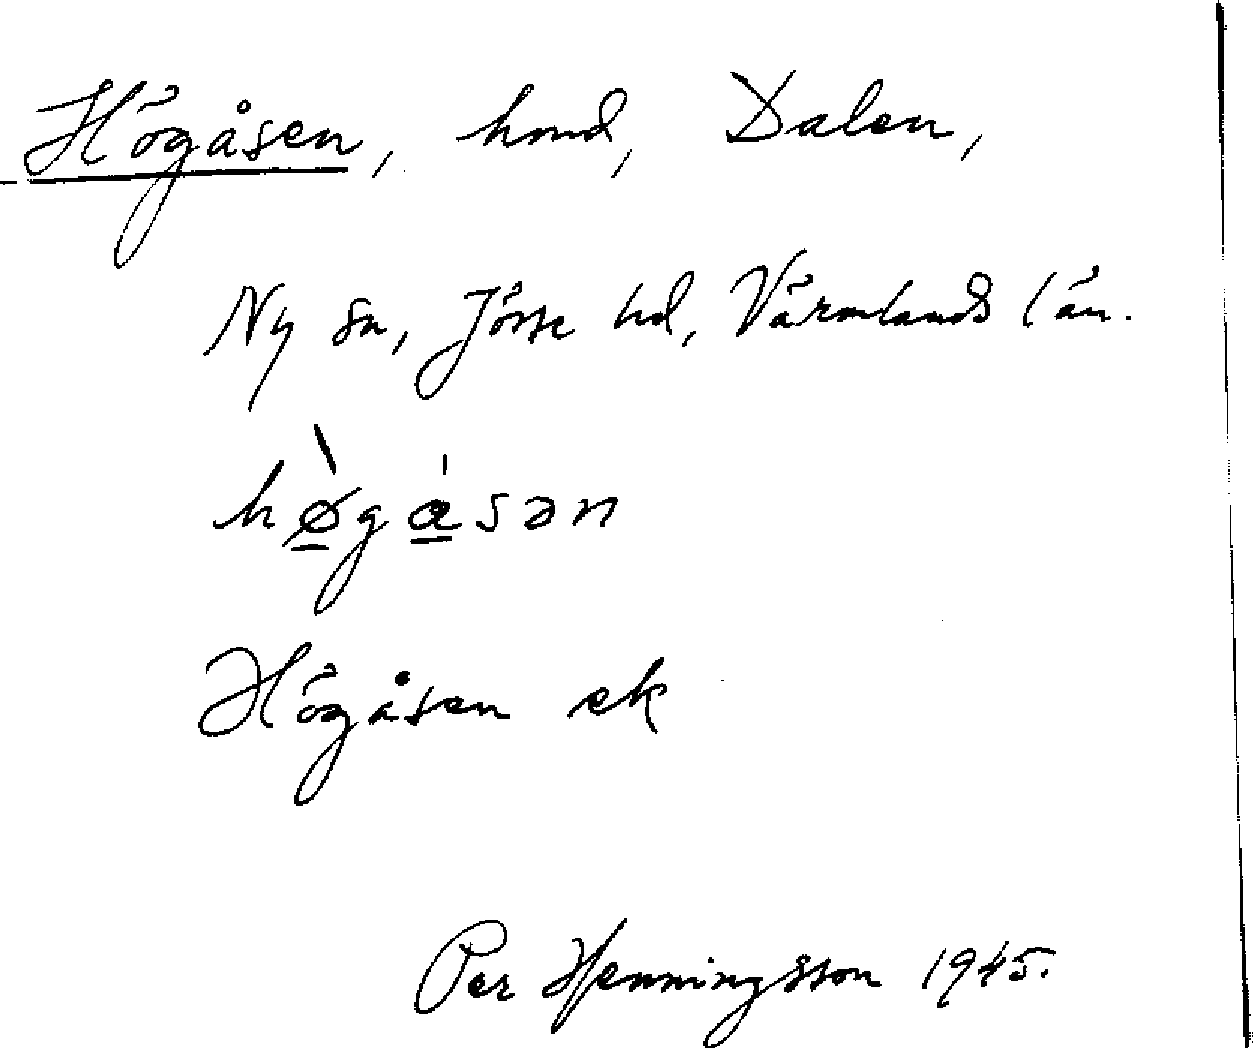 Högåsen, hmd, Dalen,
Ny sn, Jösse hd, Värmlands län.
hø̀gåsən
Högåsen ek
Per Henningsson 1945.